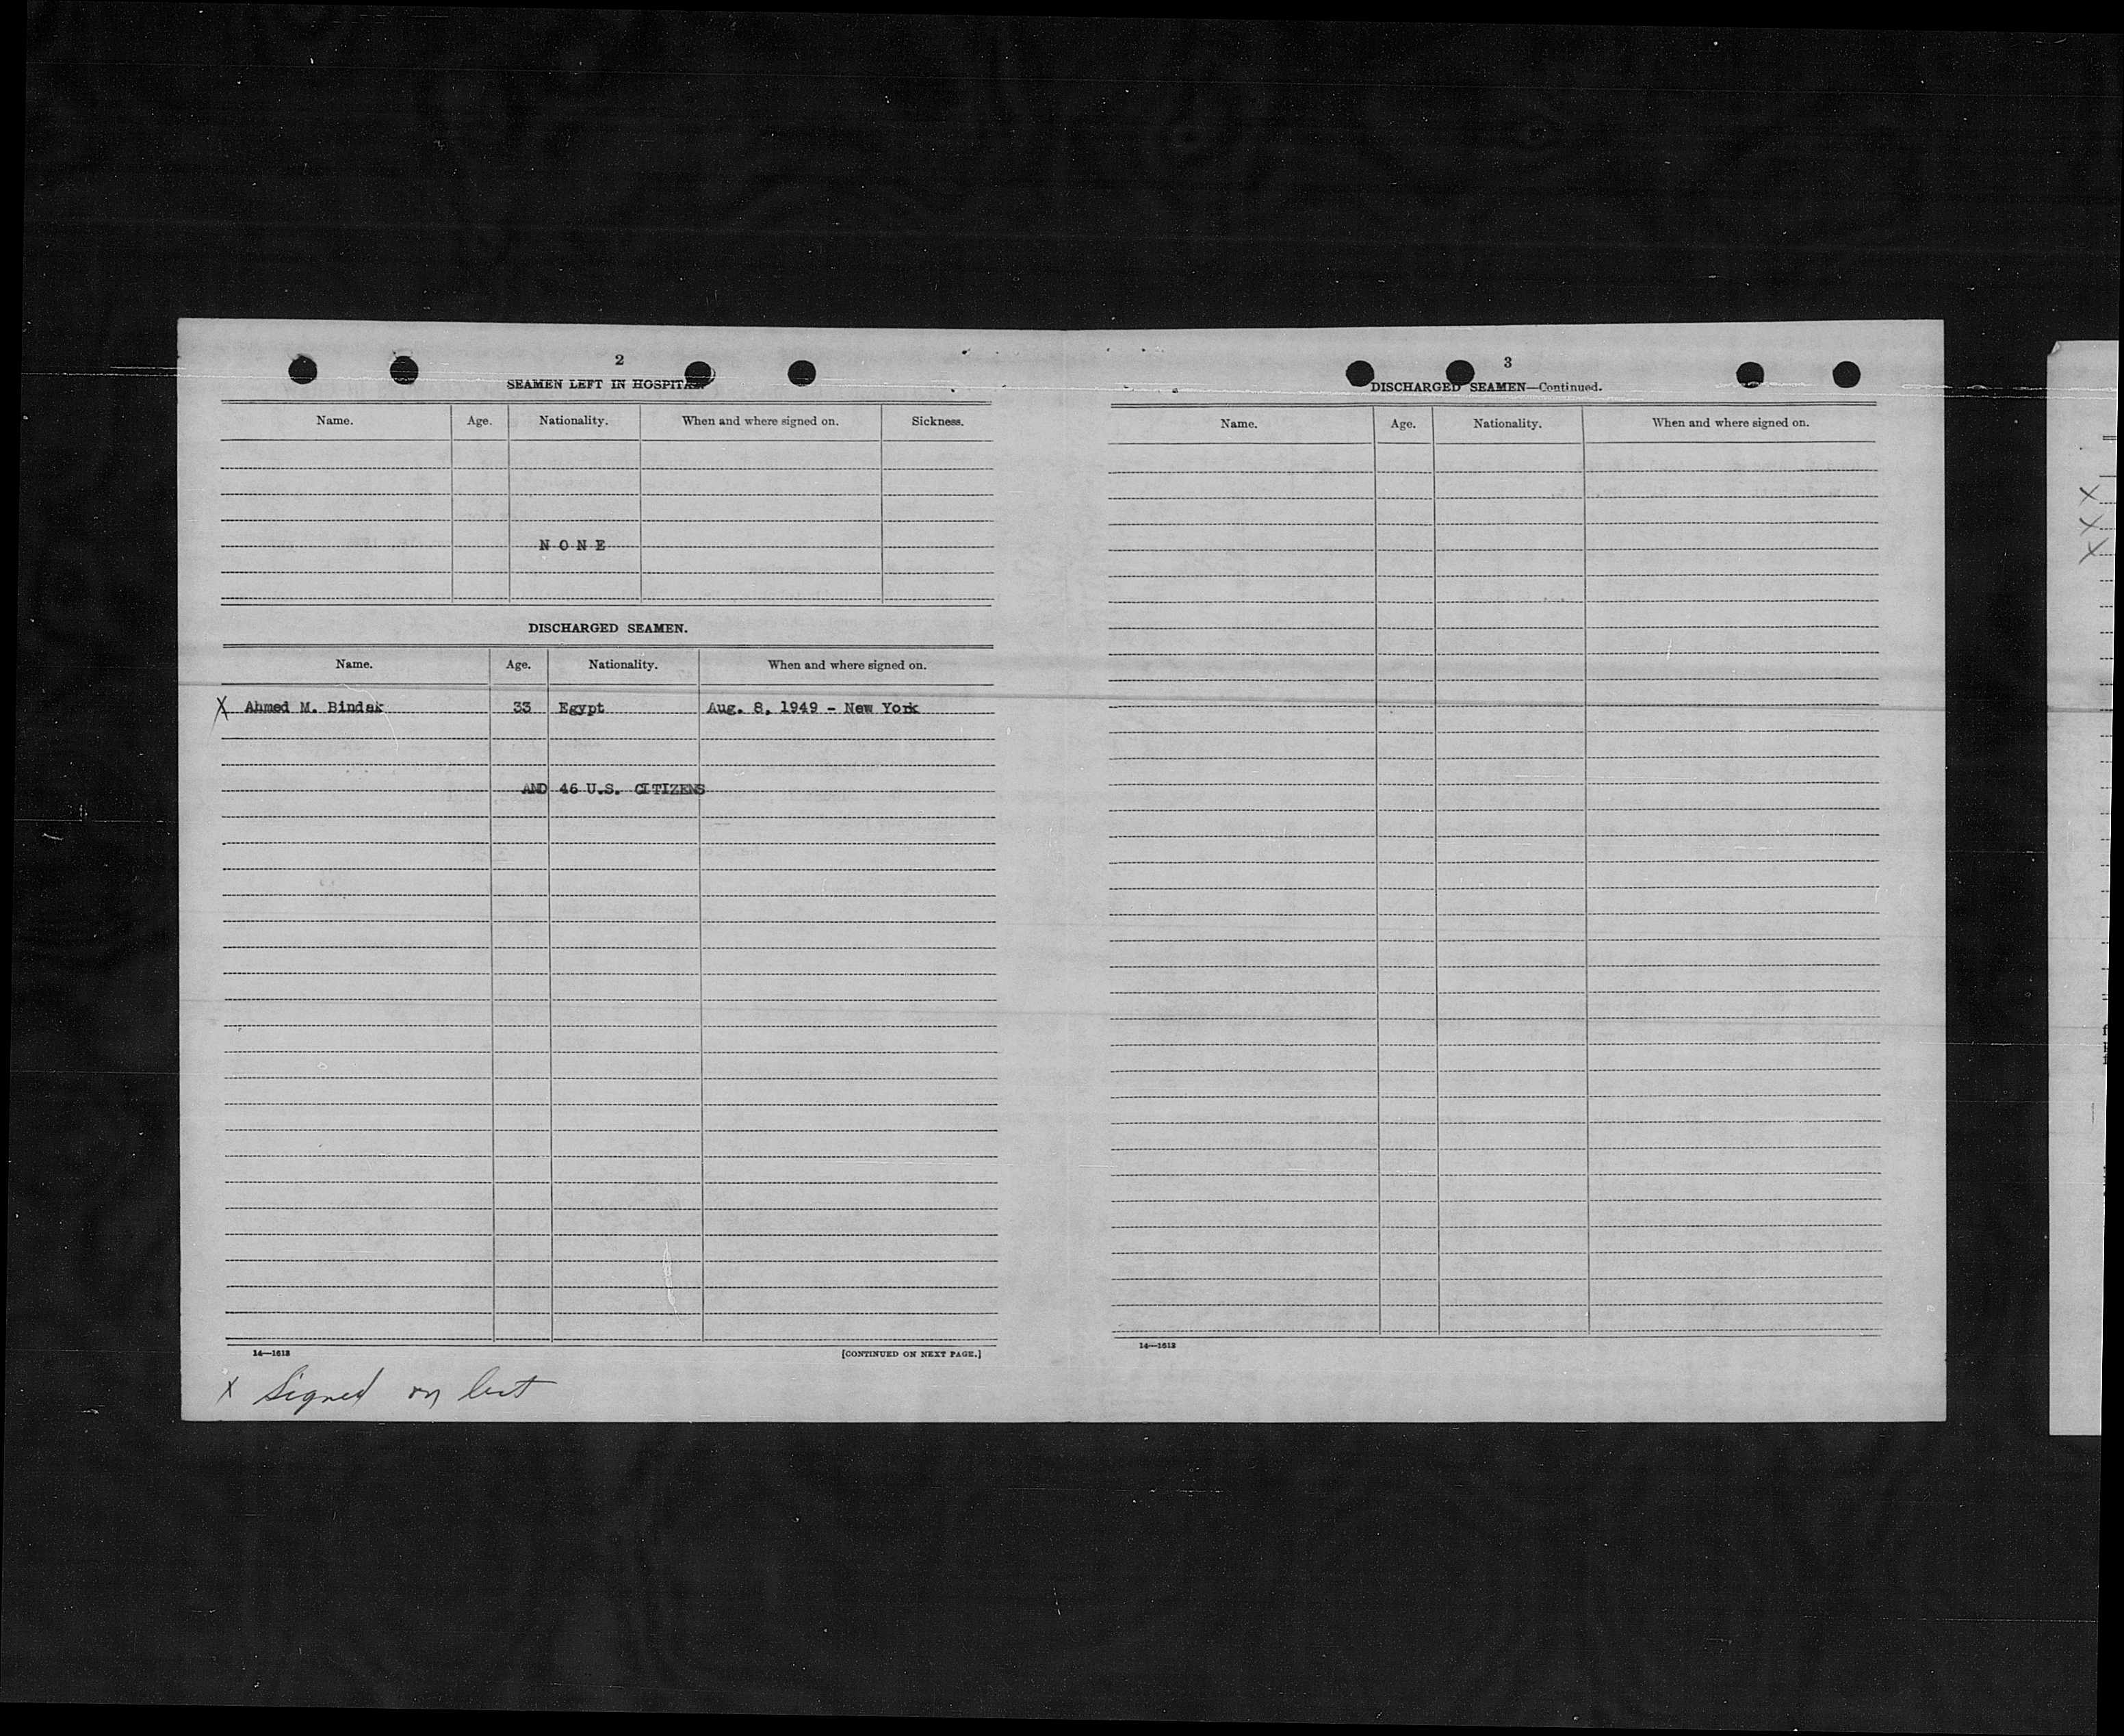 2
SEAMEN LEFT IN HOSPITAL
Name. Age. Nationality. When and where signed on. Sickness.
NONE
DISCHARGED SEAMEN.
Name. Age. Nationality. When and where signed on.
X Ahmed M. Bindak 33 Egypt Aug. 8, 1949 - New York
AND 46 U.S. CITIZENS
14—1613
[CONTINUED ON NEXT PAGE.]
x Signed on list
3
DISCHARGED SEAMEN—Continued.
Name. Age. Nationality. When and where signed on.
14—1613
X
X
X